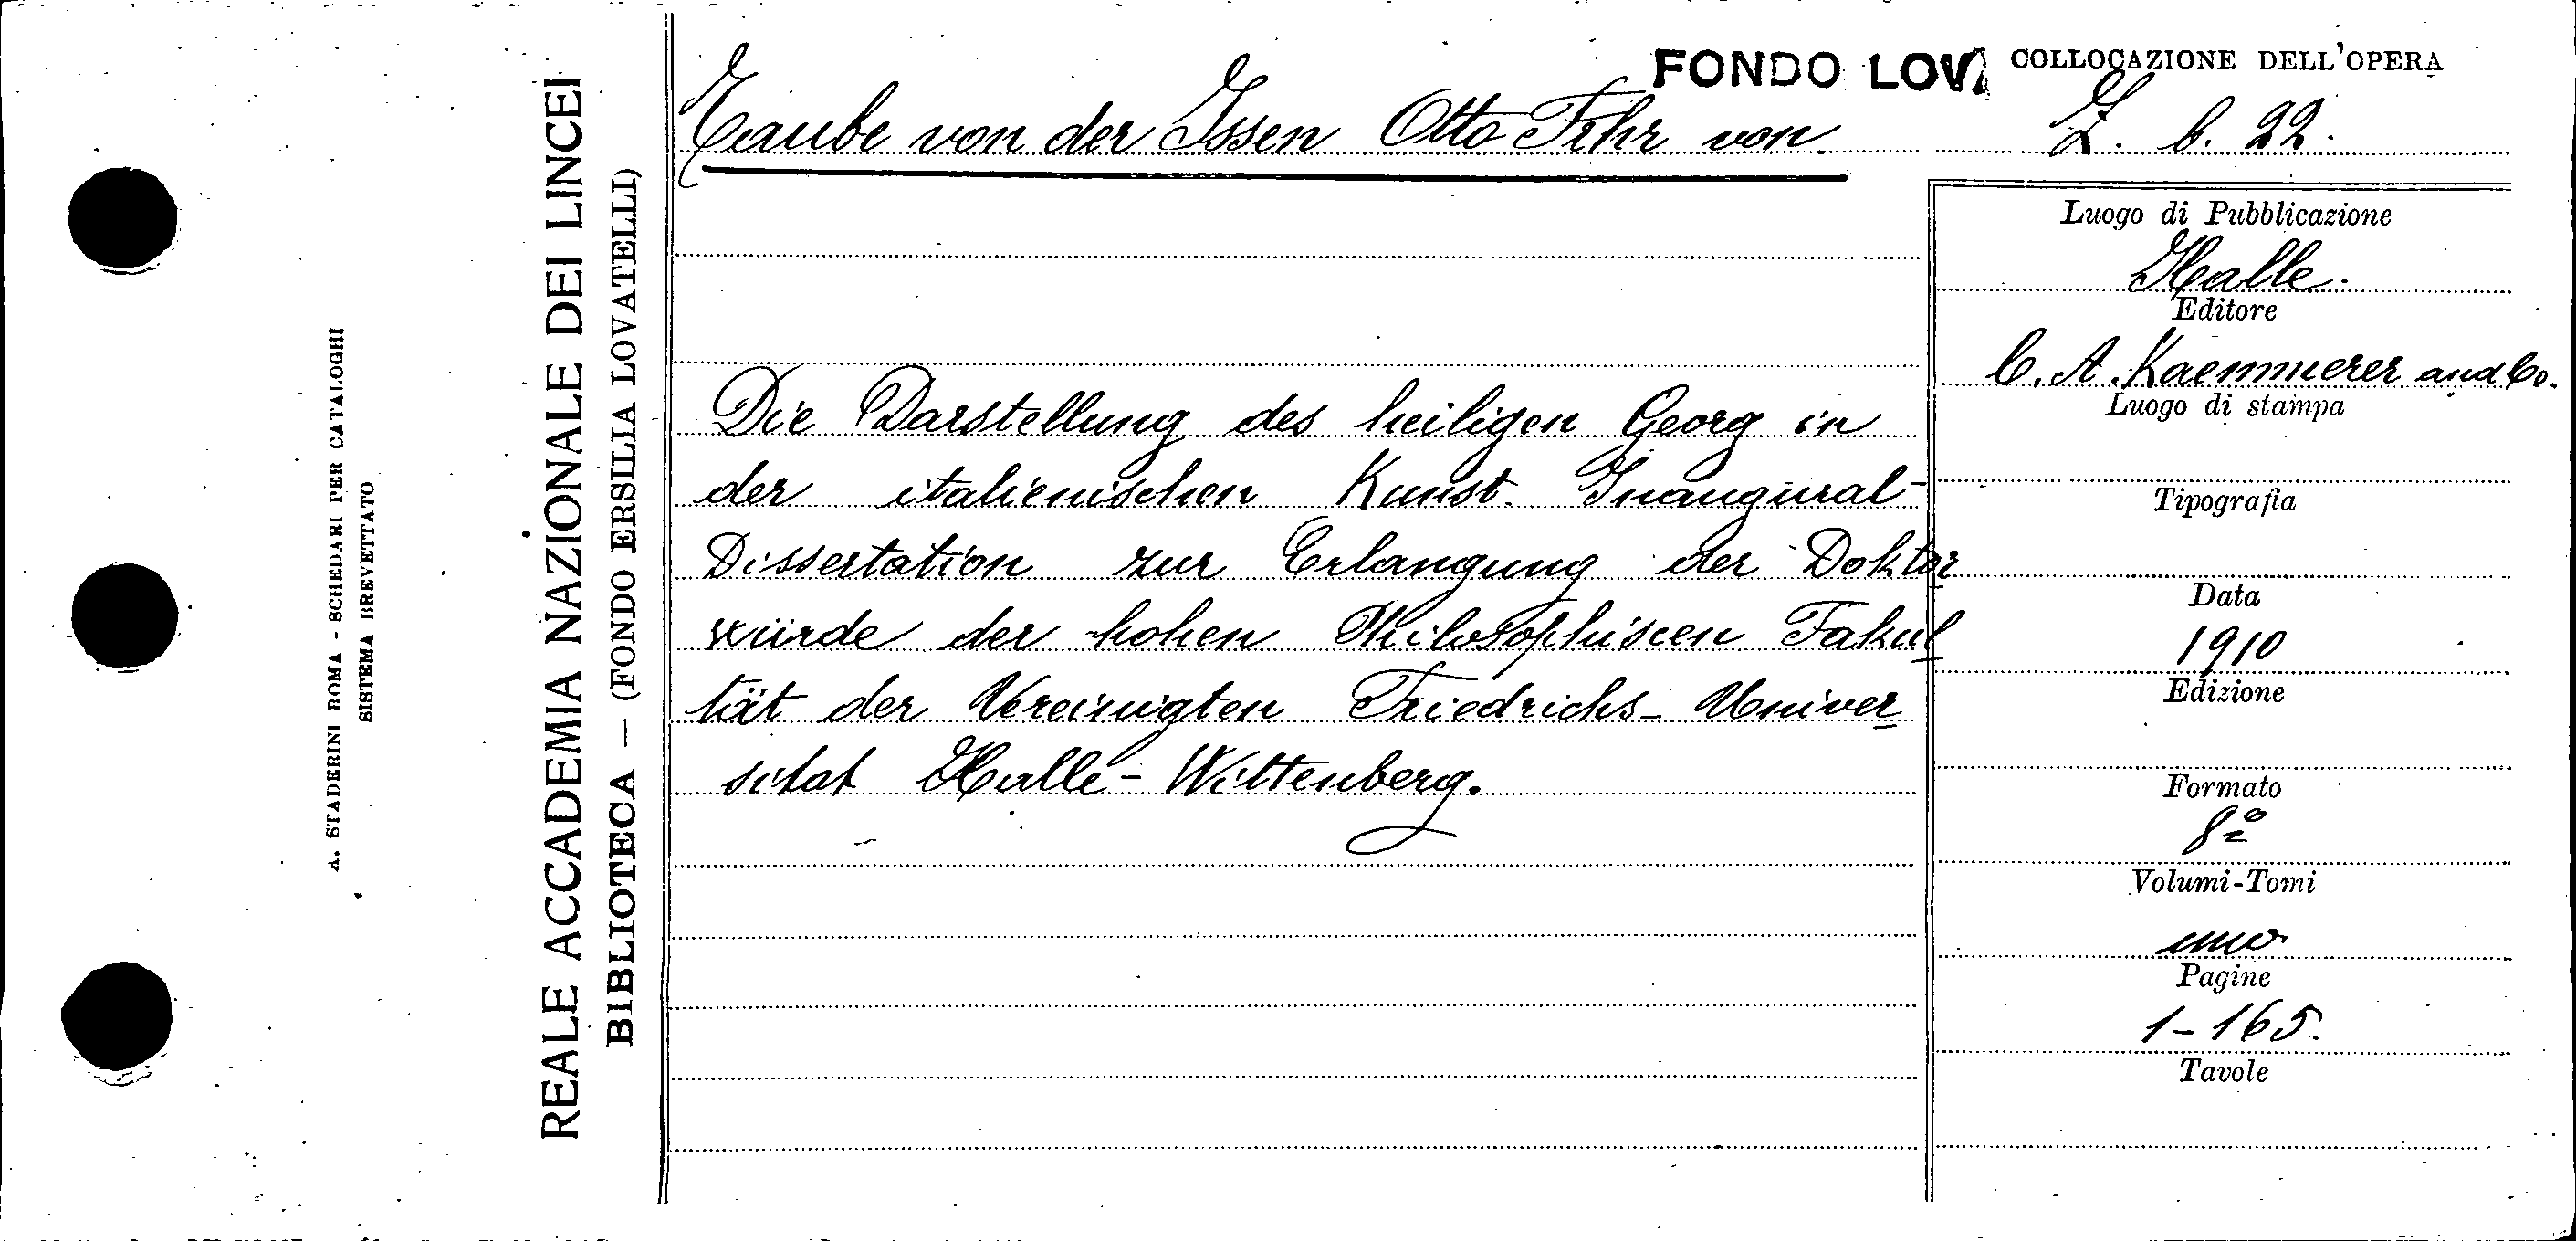 A. STADERINI ROMA - SCHEDARI PER CATALOGHI
SISTEMA BREVETTATO
REALE ACCADEMIA NAZIONALE DEI LINCEI
BIBLIOTECA — (FONDO ERSILIA LOVATELLI)
FONDO LOVA
COLLOCAZIONE DELL'OPERA
Taube von der Issen Otto Frhr von
Z. b. 22.
Die Darstellung des heiligen Georg in
der italienischen Kunst. Inaugural-
Dissertation zur Erlangung der Doktor
würde der hohen Philosophiscen Fakul
tät der Vereinigten Friedrichs- Univer
sitat Halle- Wittenberg.
Luogo di Pubblicazione
Halle.
Editore
C. A. Kaemmerer and Co.
Luogo di stampa
Tipografia
Data
1910
Edizione
Formato
8º
Volumi-Tomi
uno
Pagine
1-165.
Tavole